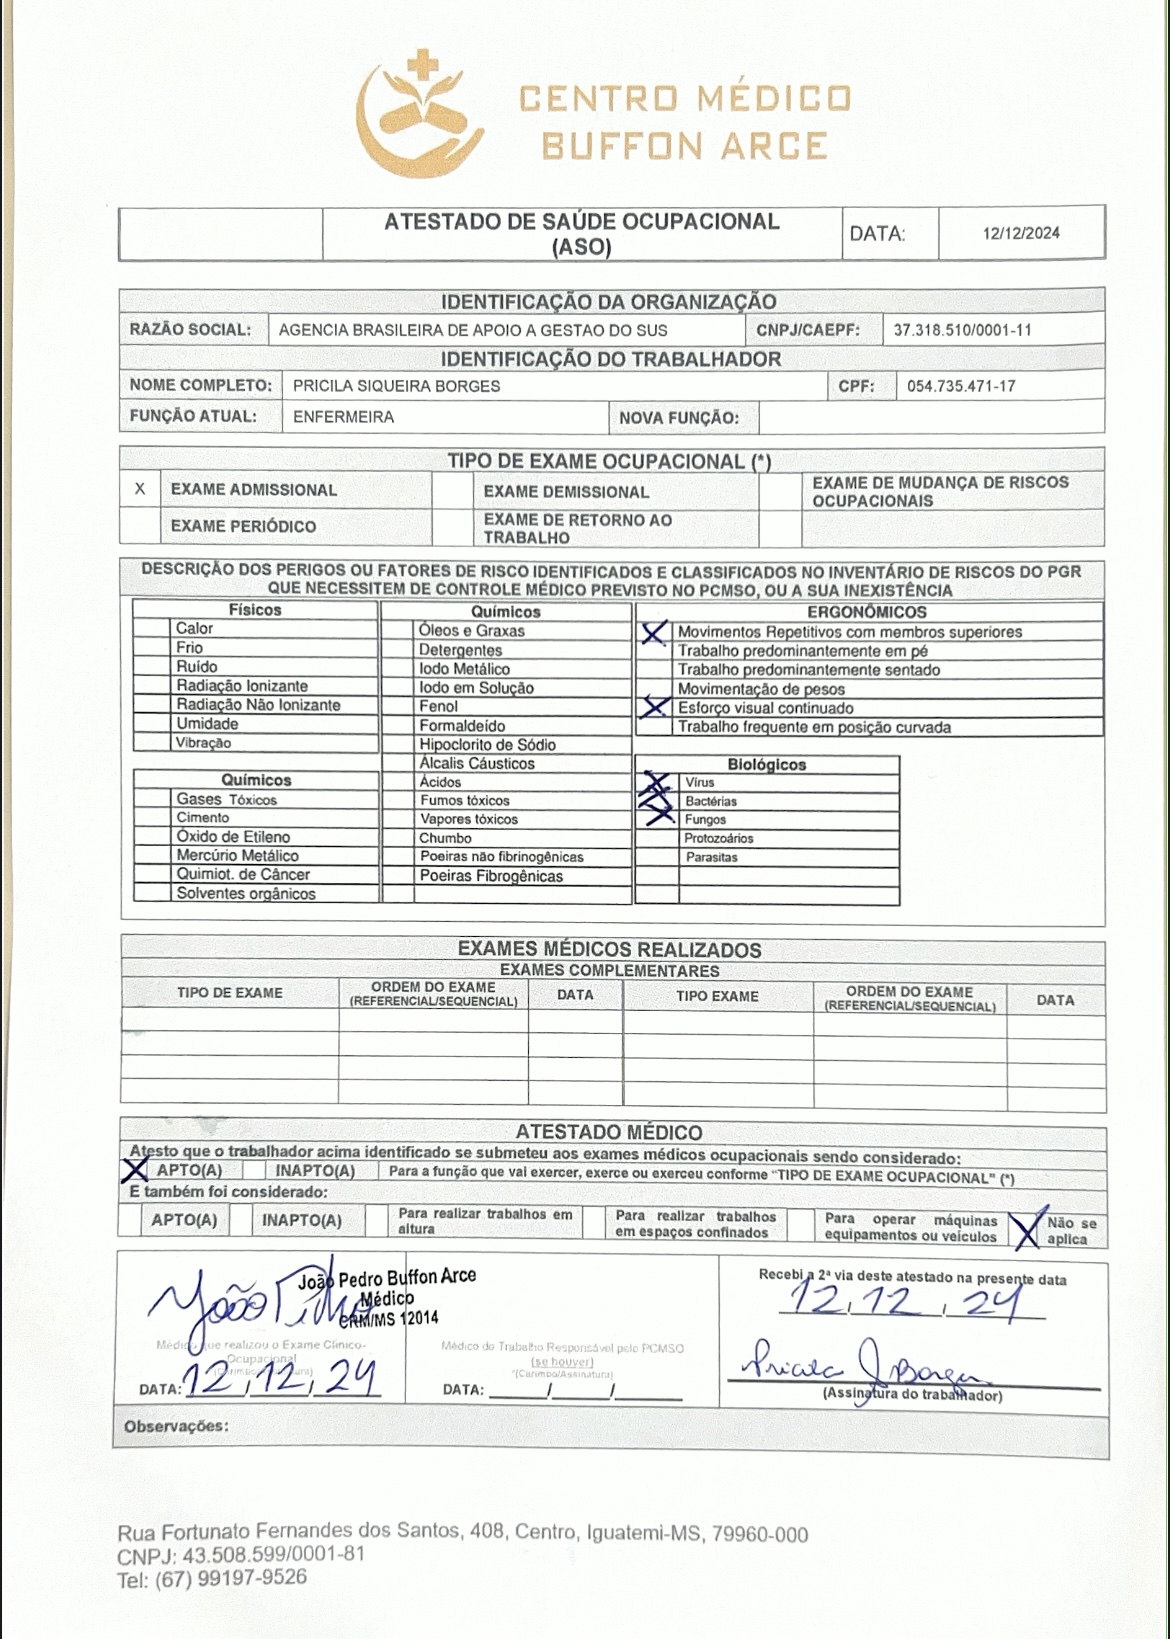 CENTRO MÉDICO
BUFFON ARCE
ATESTADO DE SAÚDE OCUPACIONAL
(ASO)
DATA:
12/12/2024
IDENTIFICAÇÃO DA ORGANIZAÇÃO
RAZÃO SOCIAL: AGENCIA BRASILEIRA DE APOIO A GESTAO DO SUS CNPJ/CAEPF: 37.318.510/0001-11
IDENTIFICAÇÃO DO TRABALHADOR
NOME COMPLETO: PRICILA SIQUEIRA BORGES CPF: 054.735.471-17
FUNÇÃO ATUAL: ENFERMEIRA NOVA FUNÇÃO:
TIPO DE EXAME OCUPACIONAL (*)
X EXAME ADMISSIONAL
EXAME DEMISSIONAL
EXAME DE MUDANÇA DE RISCOS
OCUPACIONAIS
EXAME PERIÓDICO
EXAME DE RETORNO AO
TRABALHO
DESCRIÇÃO DOS PERIGOS OU FATORES DE RISCO IDENTIFICADOS E CLASSIFICADOS NO INVENTÁRIO DE RISCOS DO PGR
QUE NECESSITEM DE CONTROLE MÉDICO PREVISTO NO PCMSO, OU A SUA INEXISTÊNCIA
Físicos
Calor
Frio
Ruído
Radiação Ionizante
Radiação Não Ionizante
Umidade
Vibração
Químicos
Gases Tóxicos
Cimento
Óxido de Etileno
Mercúrio Metálico
Quimiot. de Câncer
Solventes orgânicos
Químicos
Óleos e Graxas
Detergentes
Iodo Metálico
Iodo em Solução
Fenol
Formaldeído
Hipoclorito de Sódio
Álcalis Cáusticos
Ácidos
Fumos tóxicos
Vapores tóxicos
Chumbo
Poeiras não fibrinogênicas
Poeiras Fibrogênicas
ERGONÔMICOS
X Movimentos Repetitivos com membros superiores
Trabalho predominantemente em pé
Trabalho predominantemente sentado
Movimentação de pesos
X Esforço visual continuado
Trabalho frequente em posição curvada
Biológicos
X Vírus
X Bactérias
X Fungos
Protozoários
Parasitas
EXAMES MÉDICOS REALIZADOS
EXAMES COMPLEMENTARES
TIPO DE EXAME
ORDEM DO EXAME
(REFERENCIAL/SEQUENCIAL)
DATA
TIPO EXAME
ORDEM DO EXAME
(REFERENCIAL/SEQUENCIAL)
DATA
ATESTADO MÉDICO
Atesto que o trabalhador acima identificado se submeteu aos exames médicos ocupacionais sendo considerado:
X APTO(A) INAPTO(A) Para a função que vai exercer, exerce ou exerceu conforme "TIPO DE EXAME OCUPACIONAL" (*)
E também foi considerado:
APTO(A)
INAPTO(A)
Para realizar trabalhos em
altura
Para realizar trabalhos
em espaços confinados
Para operar máquinas
equipamentos ou veículos
X Não se
aplica
João Pedro Buffon Arce
Médico
CRM/MS 12014
Médico que realizou o Exame Clínico-
Ocupacional
(Carimbo/Assinatura)
DATA: 12/12/24
Médico do Trabalho Responsável pelo PCMSO
(se houver)
(Carimbo/Assinatura)
DATA: ____/____/____
Recebi a 2ª via deste atestado na presente data
12/12/24
Pricila S Borges
(Assinatura do trabalhador)
Observações:
Rua Fortunato Fernandes dos Santos, 408, Centro, Iguatemi-MS, 79960-000
CNPJ: 43.508.599/0001-81
Tel: (67) 99197-9526